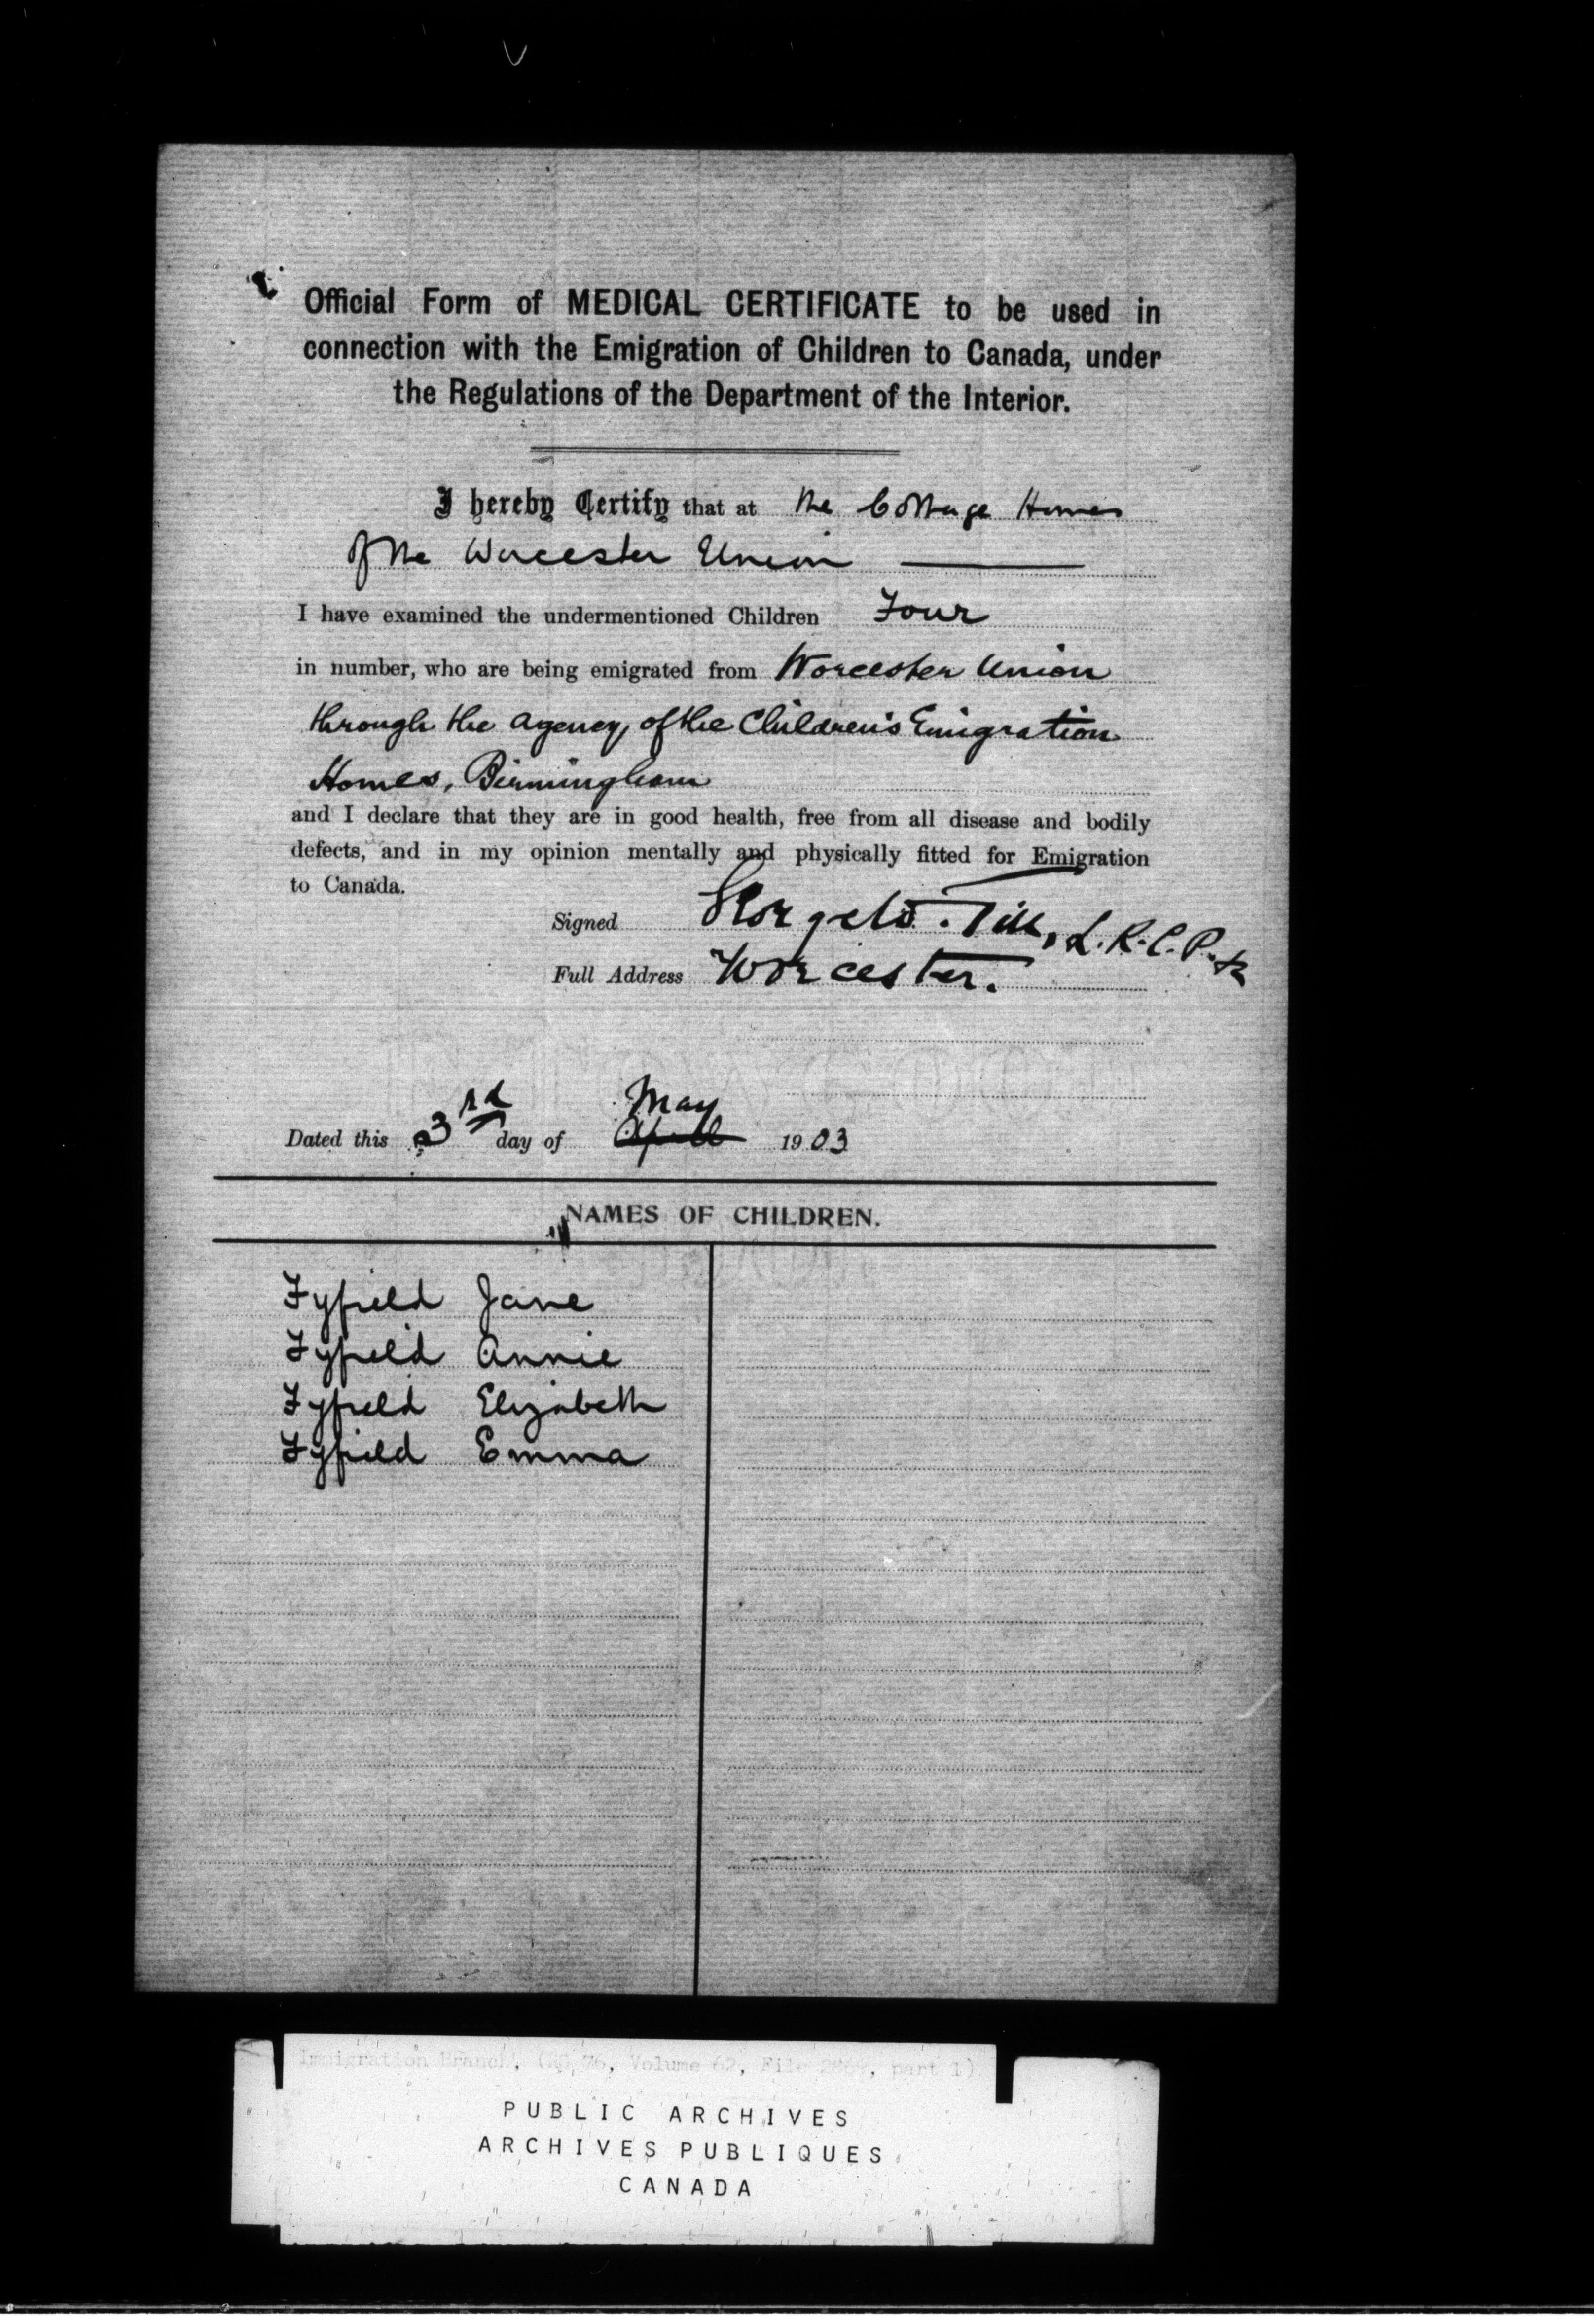 Official Form of MEDICAL CERTIFICATE to be used in
connection with the Emigration of Children to Canada, under
the Regulations of the Department of the Interior.
I hereby Certify that at the Cottage Homes
of the Worcester Union
I have examined the undermentioned Children Four
in number, who are being emigrated from Worcester Union
through the agency of the Children's Emigration
Homes, Birmingham
and I declare that they are in good health, free from all disease and bodily
defects, and in my opinion mentally and physically fitted for Emigration
to Canada.
Signed George W. Till, L.R.C.P. &
Full Address Worcester.
May
Dated this 3rd day of April 1903
NAMES OF CHILDREN.
Fyfield Jane
Fyfield Annie
Fyfield Elizabeth
Fyfield Emma
Immigration Branch, (RG 76, Volume 62, File 2869, part 1)
PUBLIC ARCHIVES
ARCHIVES PUBLIQUES
CANADA